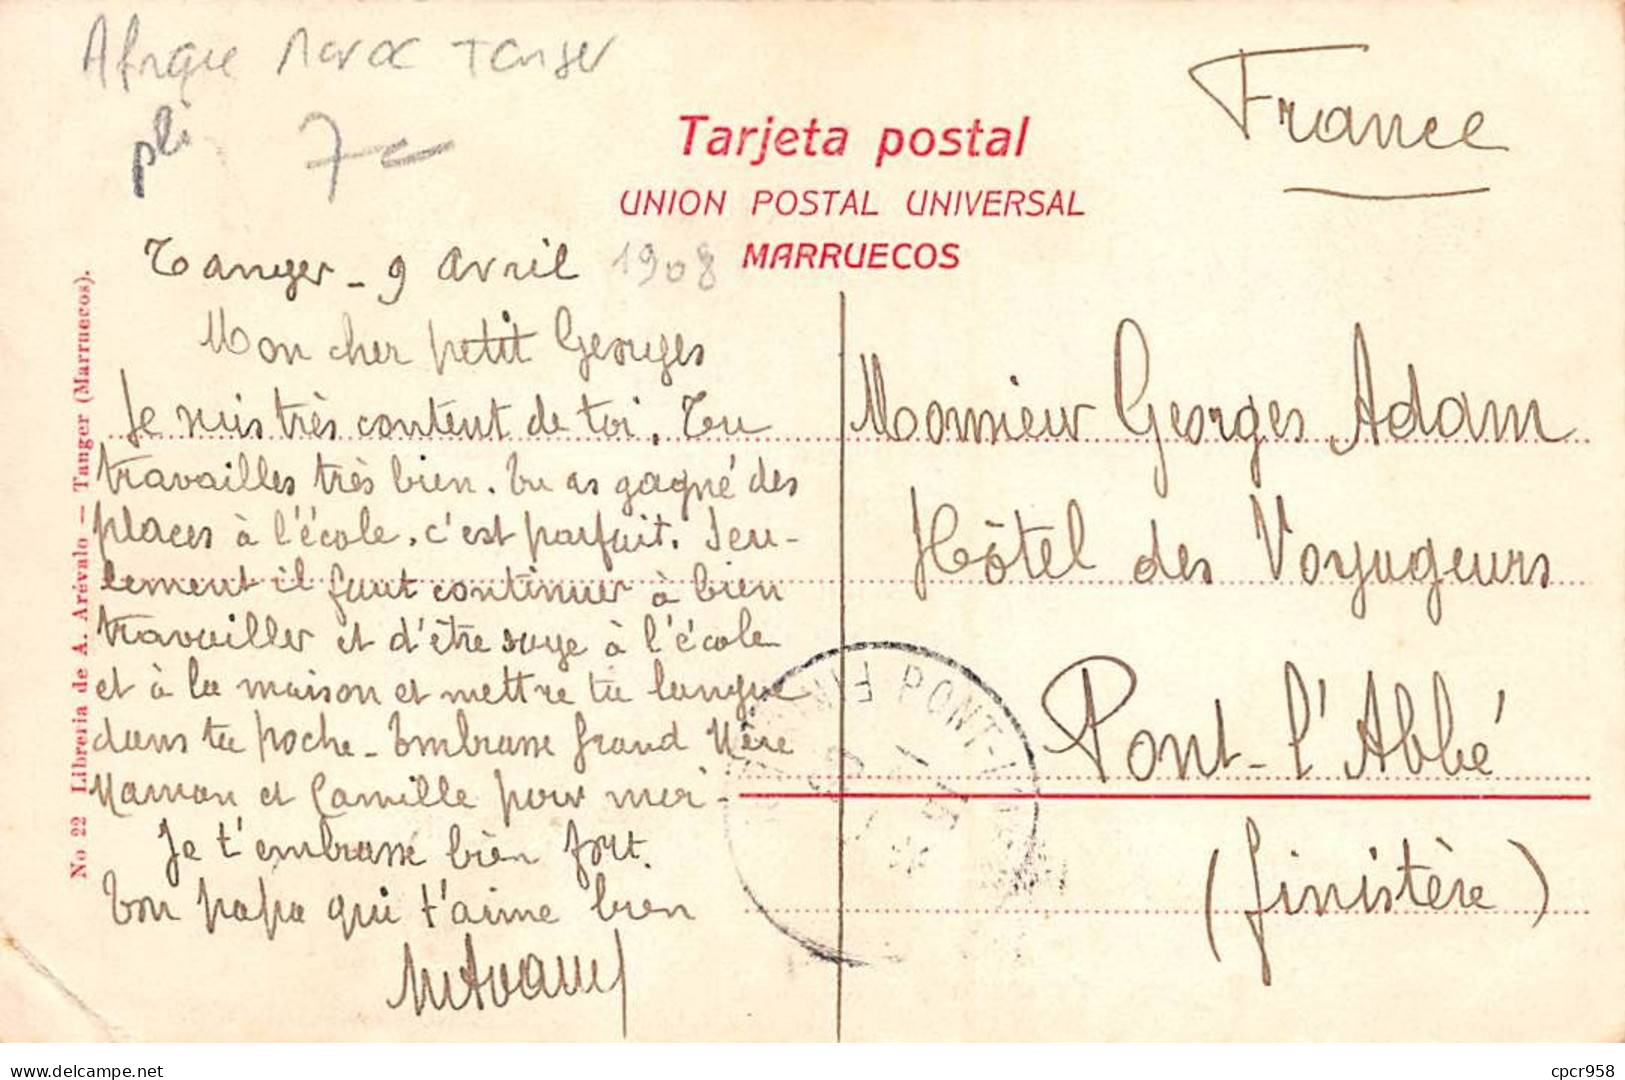 Afrique Maroc Tanger
pli 7€
France
Tarjeta postal
UNION POSTAL UNIVERSAL
MARRUECOS
No 22 Libreria de A. Arévalo — Tanger (Marruecos).
Tanger - 9 Avril 1908
Mon cher petit Georges
Je suis très content de toi. Tu
travailles très bien. Tu as gagné des
places à l'école. c'est parfait. Seu-
lement il faut continuer à bien
travailler et d'être sage à l'école
et à la maison et mettre ta langue
dans ta poche - Embrasse Grand Mère
Maman et Camille pour moi -
Je t'embrasse bien fort.
Ton papa qui t'aime bien
Monsieur Georges Adam
Hôtel des Voyageurs
Pont-l'Abbé
(Finistère)
PONT-L'ABBÉ
Delcampe.net
cpcr958